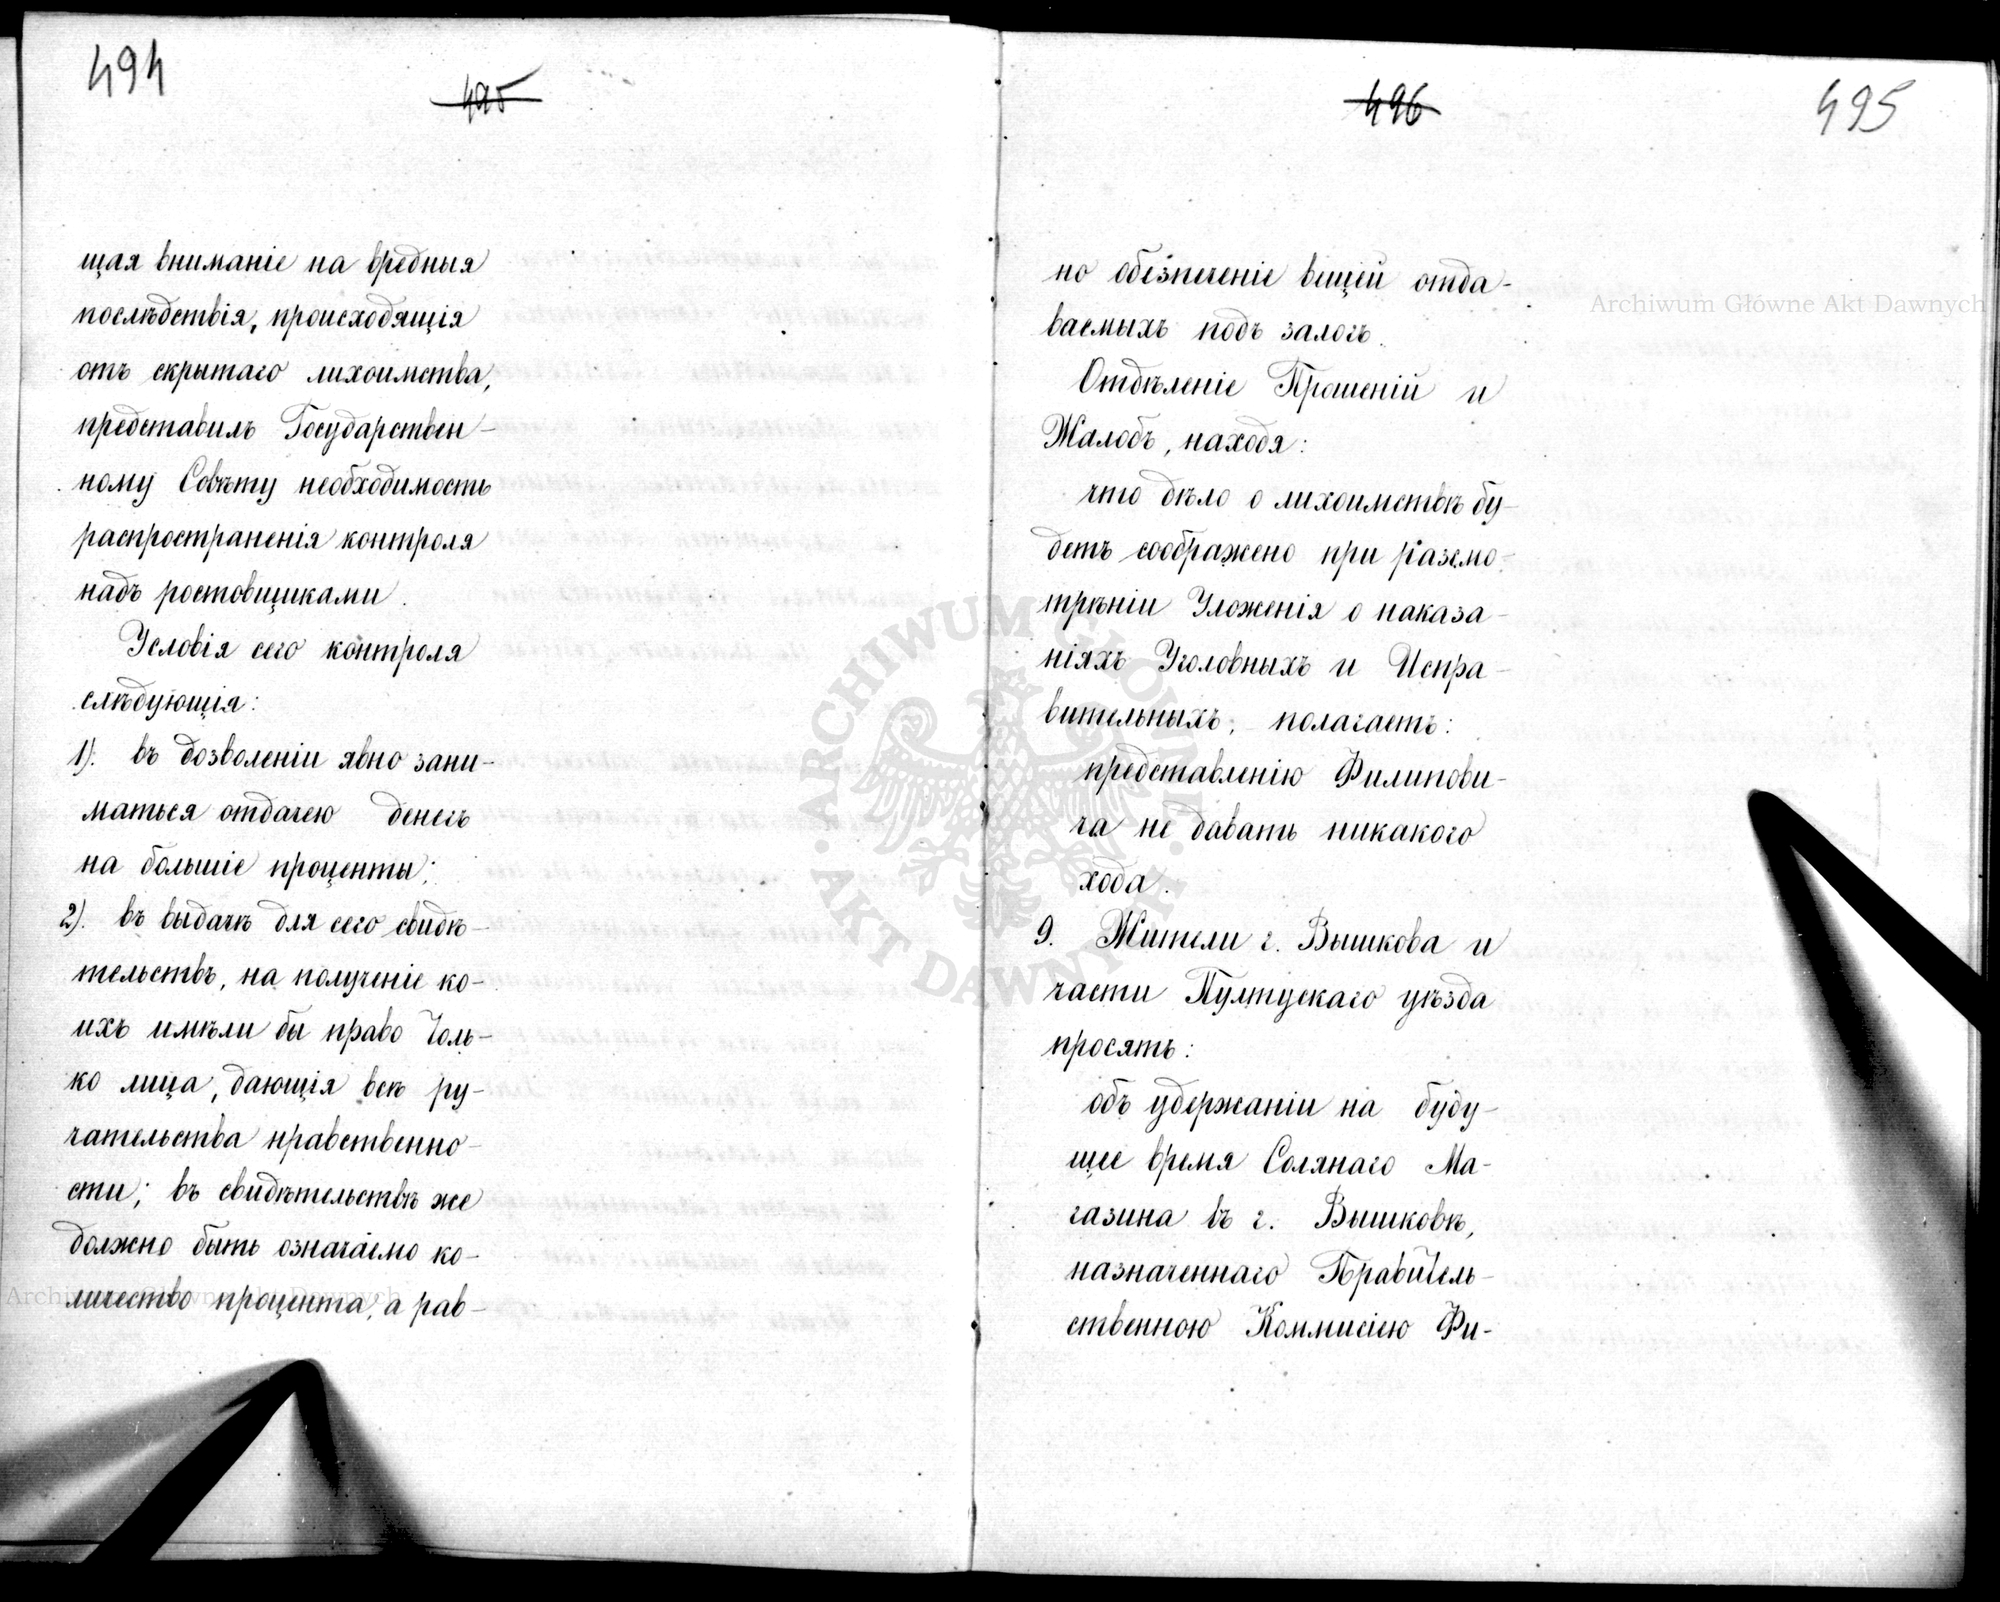 494
495
щая вниманіе на вредныя
послѣдствія, происходящія
отъ скрытаго лихоимства,
представилъ Государствен-
ному Совѣту необходимость
распространенія контроля
надъ ростовщиками.
Условія сего контроля
слѣдующія:
1). въ дозволеніи явно зани-
маться отдачею денегъ
на большіе проценты;
2). въ выдачѣ для сего свидѣ-
тельствъ, на полученіе ко-
ихъ имѣли бы право толь-
ко лица, дающія всѣ ру-
чательства нравственно-
сти; въ свидѣтельствѣ же
должно быть означаемо ко-
личество процента, а рав-
Archiwum Główne Akt Dawnych
496
495
но обезпеченіе вещей отда-
ваемыхъ подъ залогъ.
Archiwum Główne Akt Dawnych
Отдѣленіе Прошеній и
Жалобъ, находя:
что дѣло о лихоимствѣ бу-
детъ соображено при разсмо-
трѣніи Уложенія о наказа-
ніяхъ Уголовныхъ и Испра-
вительныхъ; полагаетъ:
представленію Филипови-
ча не давать никакого
хода.
9. Жители г. Вышкова и
части Пултускаго уѣзда
просятъ:
объ удержаніи на буду-
щее время Солянаго Ма-
газина въ г. Вышковѣ,
назначеннаго Правитель-
ственною Коммисіею Фи-
ARCHIWUM GŁÓWNE AKT DAWNYCH